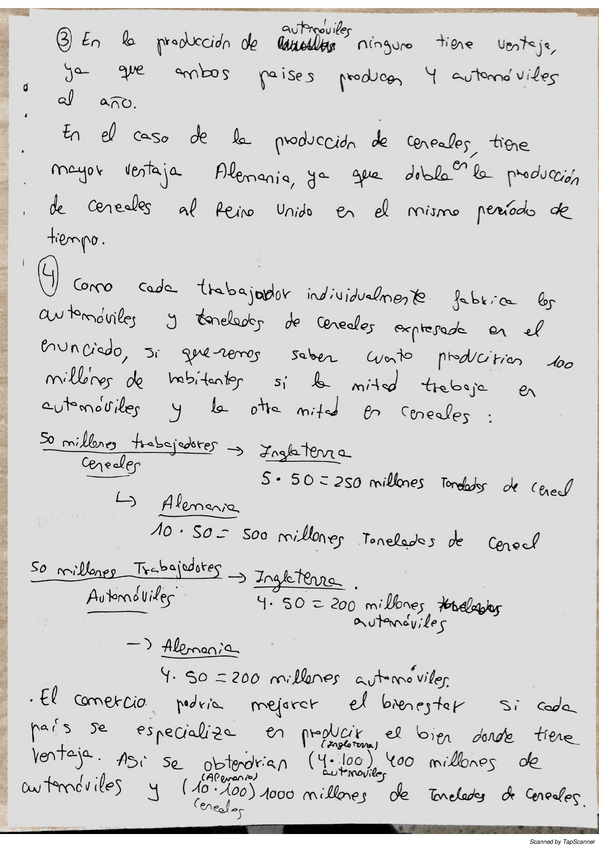 automóviles
③ En la producción de ninguno tiene ventaja,
ya que ambos países producen 4 automóviles
al año.
En el caso de la producción de cereales, tiene
mayor ventaja Alemania, ya que dobla en la producción
de cereales al Reino Unido en el mismo período de
tiempo.
④ Como cada trabajador individualmente fabrica los
automóviles y toneladas de cereales expresada en el
enunciado, si queremos saber cuanto producirian 100
millónes de habitantes si la mitad trabaja en
automóviles y la otra mitad en cereales :
50 millones trabajadores → Inglaterra
Cereales
5 · 50 = 250 millones Toneladas de cereal
↳ Alemania
10 · 50 = 500 millones Toneladas de cereal
50 millones Trabajadores → Inglaterra.
Automóviles
4 · 50 = 200 millones toneladas
automóviles
→ Alemania
4 · 50 = 200 millones automóviles.
· El comercio podria mejorar el bienestar si cada
país se especializa en producir el bien donde tiene
(Inglaterra)
ventaja. Asi se obtendrian (4 · 100) 400 millones de
automóviles
(Alemania)
automóviles y (10 · 100) 1000 millones de Toneladas de Cereales.
Cereales
Scanned by TapScanner